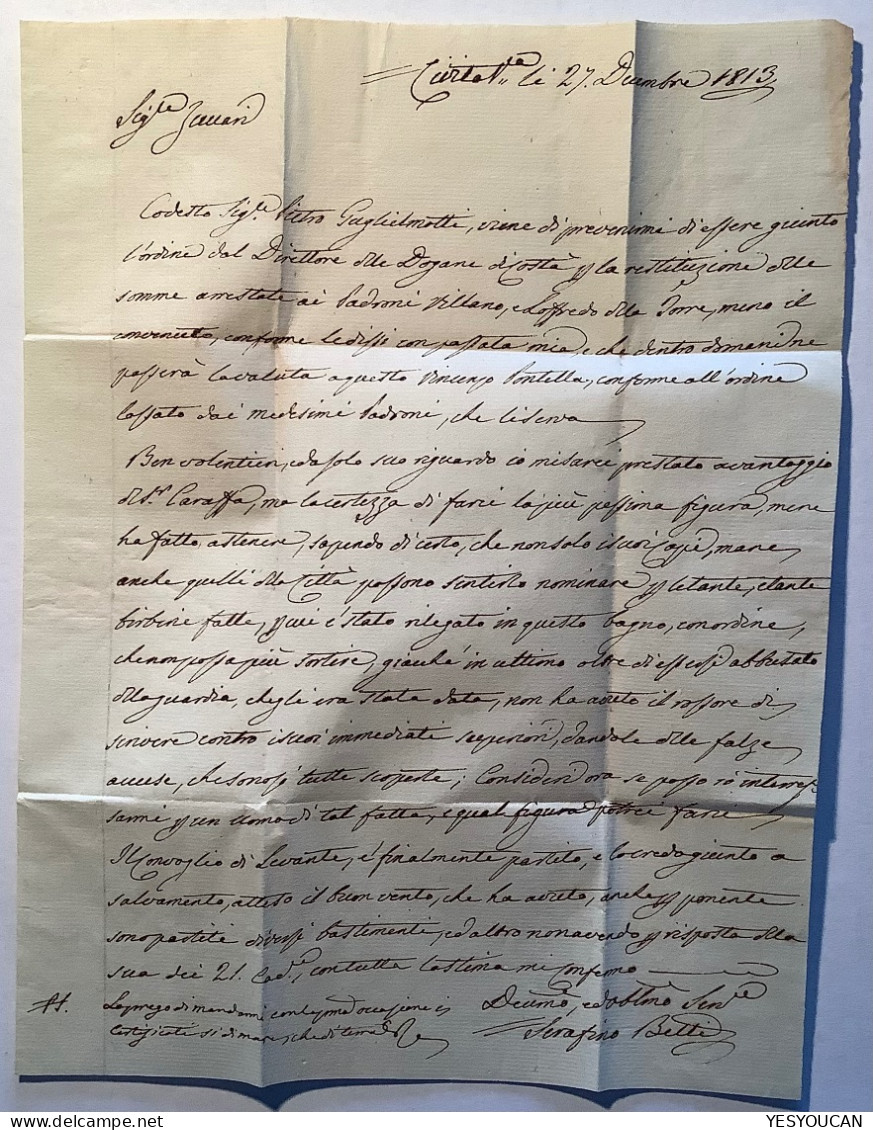 Civitav.ª li 27. Dicembre 1813
Sig.re Zuccari
Codesto Sig.r Pietro Guglielmotti, viene di prevenirmi di essere giunto
l'ordine dal Direttore delle Dogane di costà per la restituzione delle
somme arrestate ai Padroni Villano, e Loffredo della Torre, meno il
convenuto, conforme le dissi con passata mia, e che dentro domandne
passerà la valuta a questo Vincenzo Portella, conforme all'ordine
lassato dai medesimi Padroni, che li serva
Ben volentieri, ed a solo suo riguardo io mi sarei prestato a vantaggio
di S.r Caraffa, ma la certezza di farci la più pessima figura, me ne
ha fatto astenere, sapendo di certo, che non solo i suoi Capi, ma ne
anche quelli della Città possono sentirlo nominare per le tante, e tante
birbine fatte, per cui è stato rilegato in questo bagno, con ordine,
che non possa più sortire, giacché in ultimo oltre di essersi abbusato
della guardia, che gli era stata data, non ha avuto il rossore di
scrivere contro i suoi immediati superiori, dandole delle falze
accuse, che sonosi tutte scoperte; Consideri ora se posso io interres-
sarmi per un uomo di tal fatta, e qual figura potrei farci
Il Convoglio di Levante, è finalmente partito, e lo credo giunto a
salvamento, atteso il buon vento, che ha avuto, anche per ponente
sono partiti diversi bastimenti, ed altro non avendo per risposta della
sua dei 21. Cad.e, con tutta la stima mi confermo
Devmo, ed obblmo Serv.e
Serafino Betti
La prego di mandarmi con la pma occasione i
Certificati si di mare, che di terra
YESYOUCAN